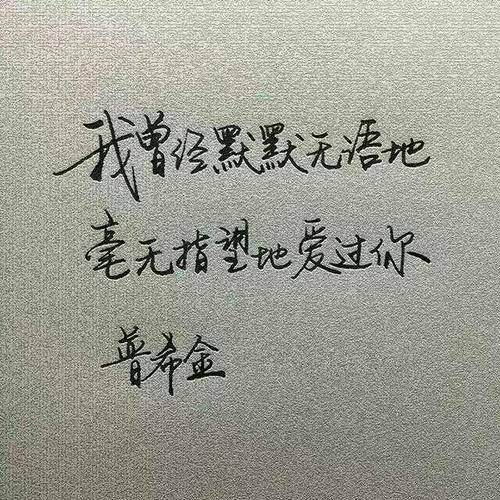 我曾经默默无语地
毫无指望地爱过你
普希金